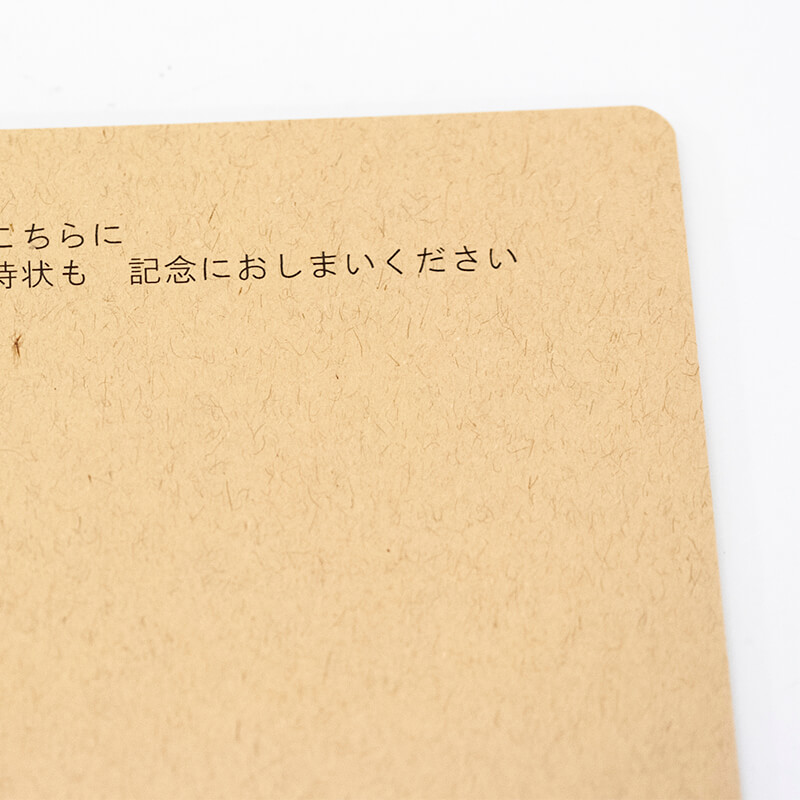 こちらに
待状も　記念におしまいください